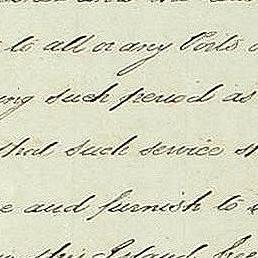 to all or any Ports
such period as
that such service
and furnish to
this Island